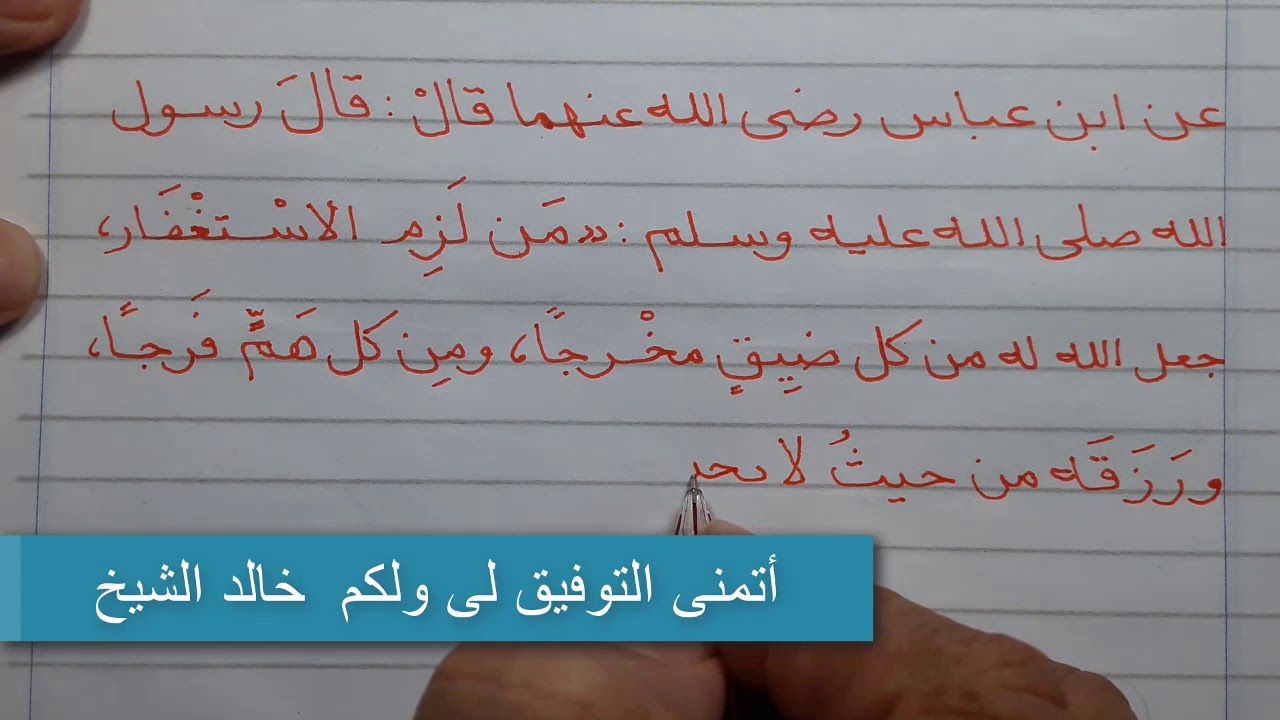 عن ابن عباس رضى الله عنهما قالْ : قالَ رسول
الله صلى الله عليه وسلم : «مَن لَزِمِ الاسْتغْفَار،
جعل الله له من كل ضِيِقٍ مخْرجًا، ومِن كَل هَمٍّ فَرجًا،
ورَزَقَه من حيثُ لا
أتمنى التوفيق لى ولكم خالد الشيخ